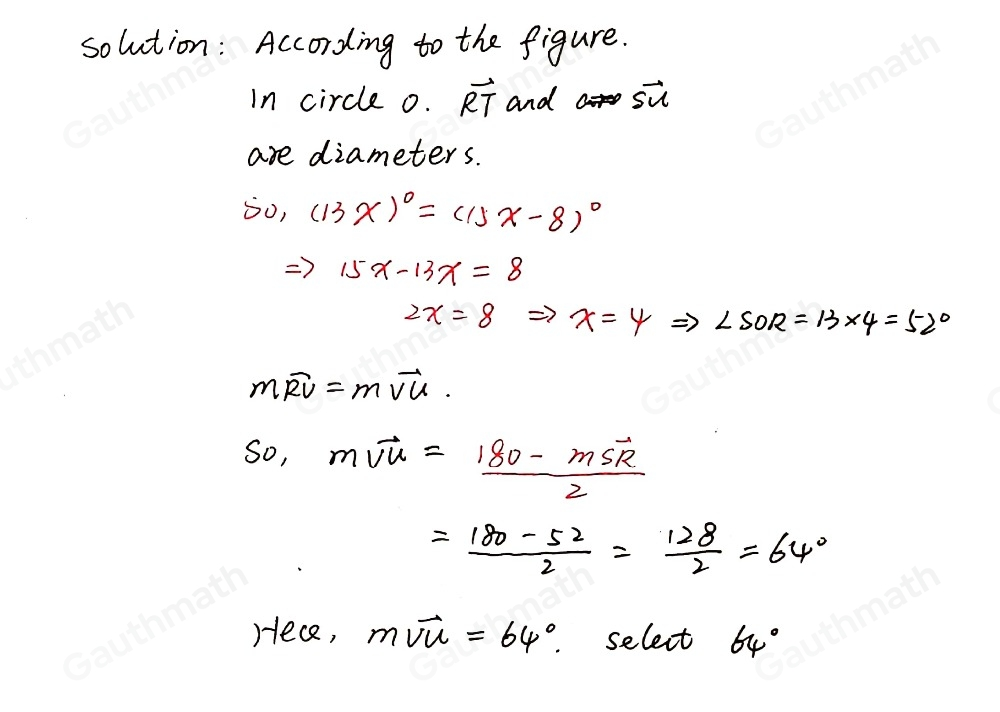 Solution: According to the figure.
In circle O. \overrightarrow{RT} and \overrightarrow{SU}
are diameters.
So, (13x)° = (15x-8)°
=> 15x-13x = 8
2x = 8 => x = 4 => ∠SOR = 13×4 = 52°
m\overrightarrow{RV} = m\overrightarrow{VU}.
So, m\overrightarrow{VU} = \frac{180 - m\overrightarrow{SR}}{2}
= \frac{180-52}{2} = \frac{128}{2} = 64°
Hece, m\overrightarrow{VU} = 64°. select 64°
Gauthmath
Gauthmath
Gauthmath
Gauthmath
Gauthmath
Gauthmath
Gauthmath
Gauthmath
Gauthmath